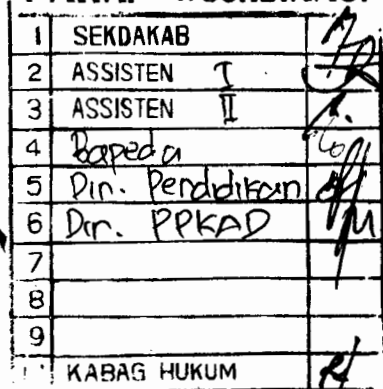 1 SEKDAKAB
2 ASSISTEN I
3 ASSISTEN II
4 Bapeda
5 Din. Pendidikan
6 Din. PPKAD
7
8
9
KABAG HUKUM